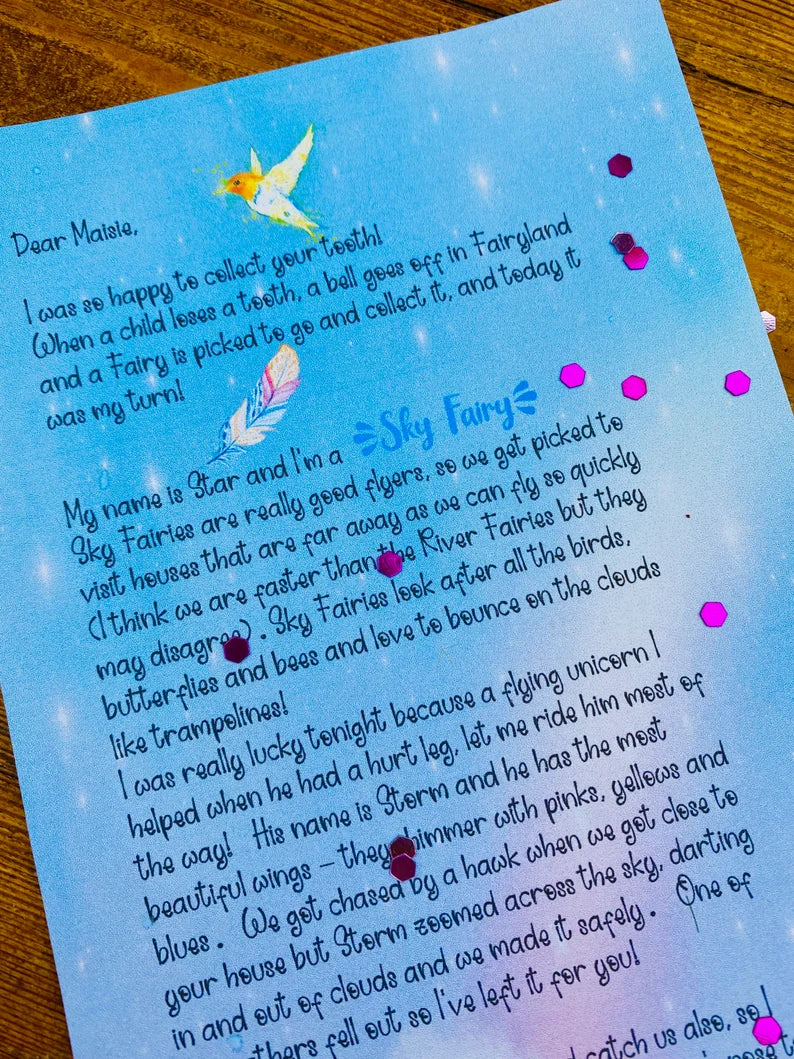 Dear Maisie,
I was so happy to collect your tooth!
When a child loses a tooth, a bell goes off in Fairyland
and a Fairy is picked to go and collect it, and today it
was my turn!
My name is Star and I'm a Sky Fairy
Sky Fairies are really good flyers, so we get picked to
visit houses that are far away as we can fly so quickly
(I think we are faster than the River Fairies but they
may disagree). Sky Fairies look after all the birds,
butterflies and bees and love to bounce on the clouds
like trampolines!
I was really lucky tonight because a flying unicorn I
helped when he had a hurt leg, let me ride him most of
the way! His name is Storm and he has the most
beautiful wings – they shimmer with pinks, yellows and
blues. We got chased by a hawk when we got close to
your house but Storm zoomed across the sky, darting
in and out of clouds and we made it safely. One of
fell out so I've left it for you!
catch us also, so I